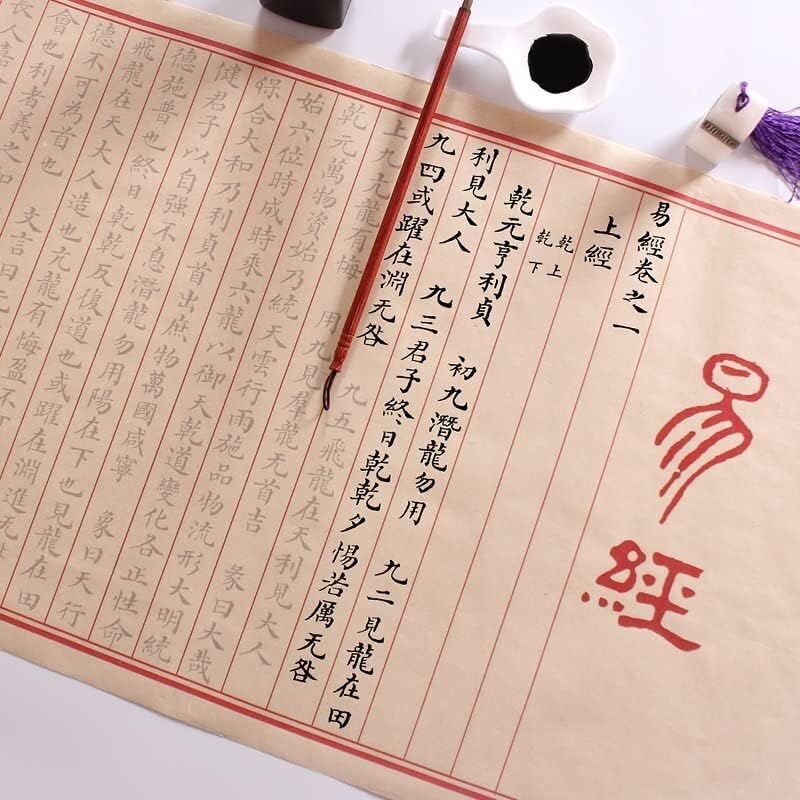 易經
易經卷之一
上經
乾上
乾下
乾元亨利貞 初九潛龍勿用 九二見龍在田
利見大人 九三君子終日乾乾夕惕若厲无咎
九四或躍在淵无咎 九五飛龍在天利見大人
上九亢龍有悔 用九見羣龍无首吉 彖曰大哉
乾元萬物資始乃統天雲行雨施品物流形大明終
始六位時成時乘六龍以御天乾道變化各正性命
保合大和乃利貞首出庶物萬國咸寧 象曰天行
健君子以自强不息潛龍勿用陽在下也見龍在田
德施普也終日乾乾反復道也或躍在淵進无咎
飛龍在天大人造也亢龍有悔盈不可
德不可為首也 文言曰元
會也利者義之和
長人嘉